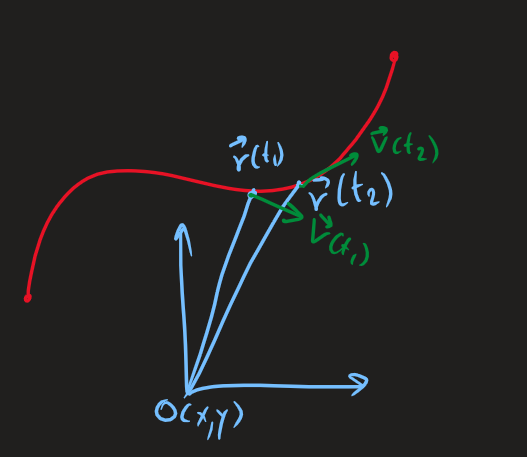 r⃗(t₁)
v⃗(t₂)
r⃗(t₂)
v⃗(t₁)
O(x,y)